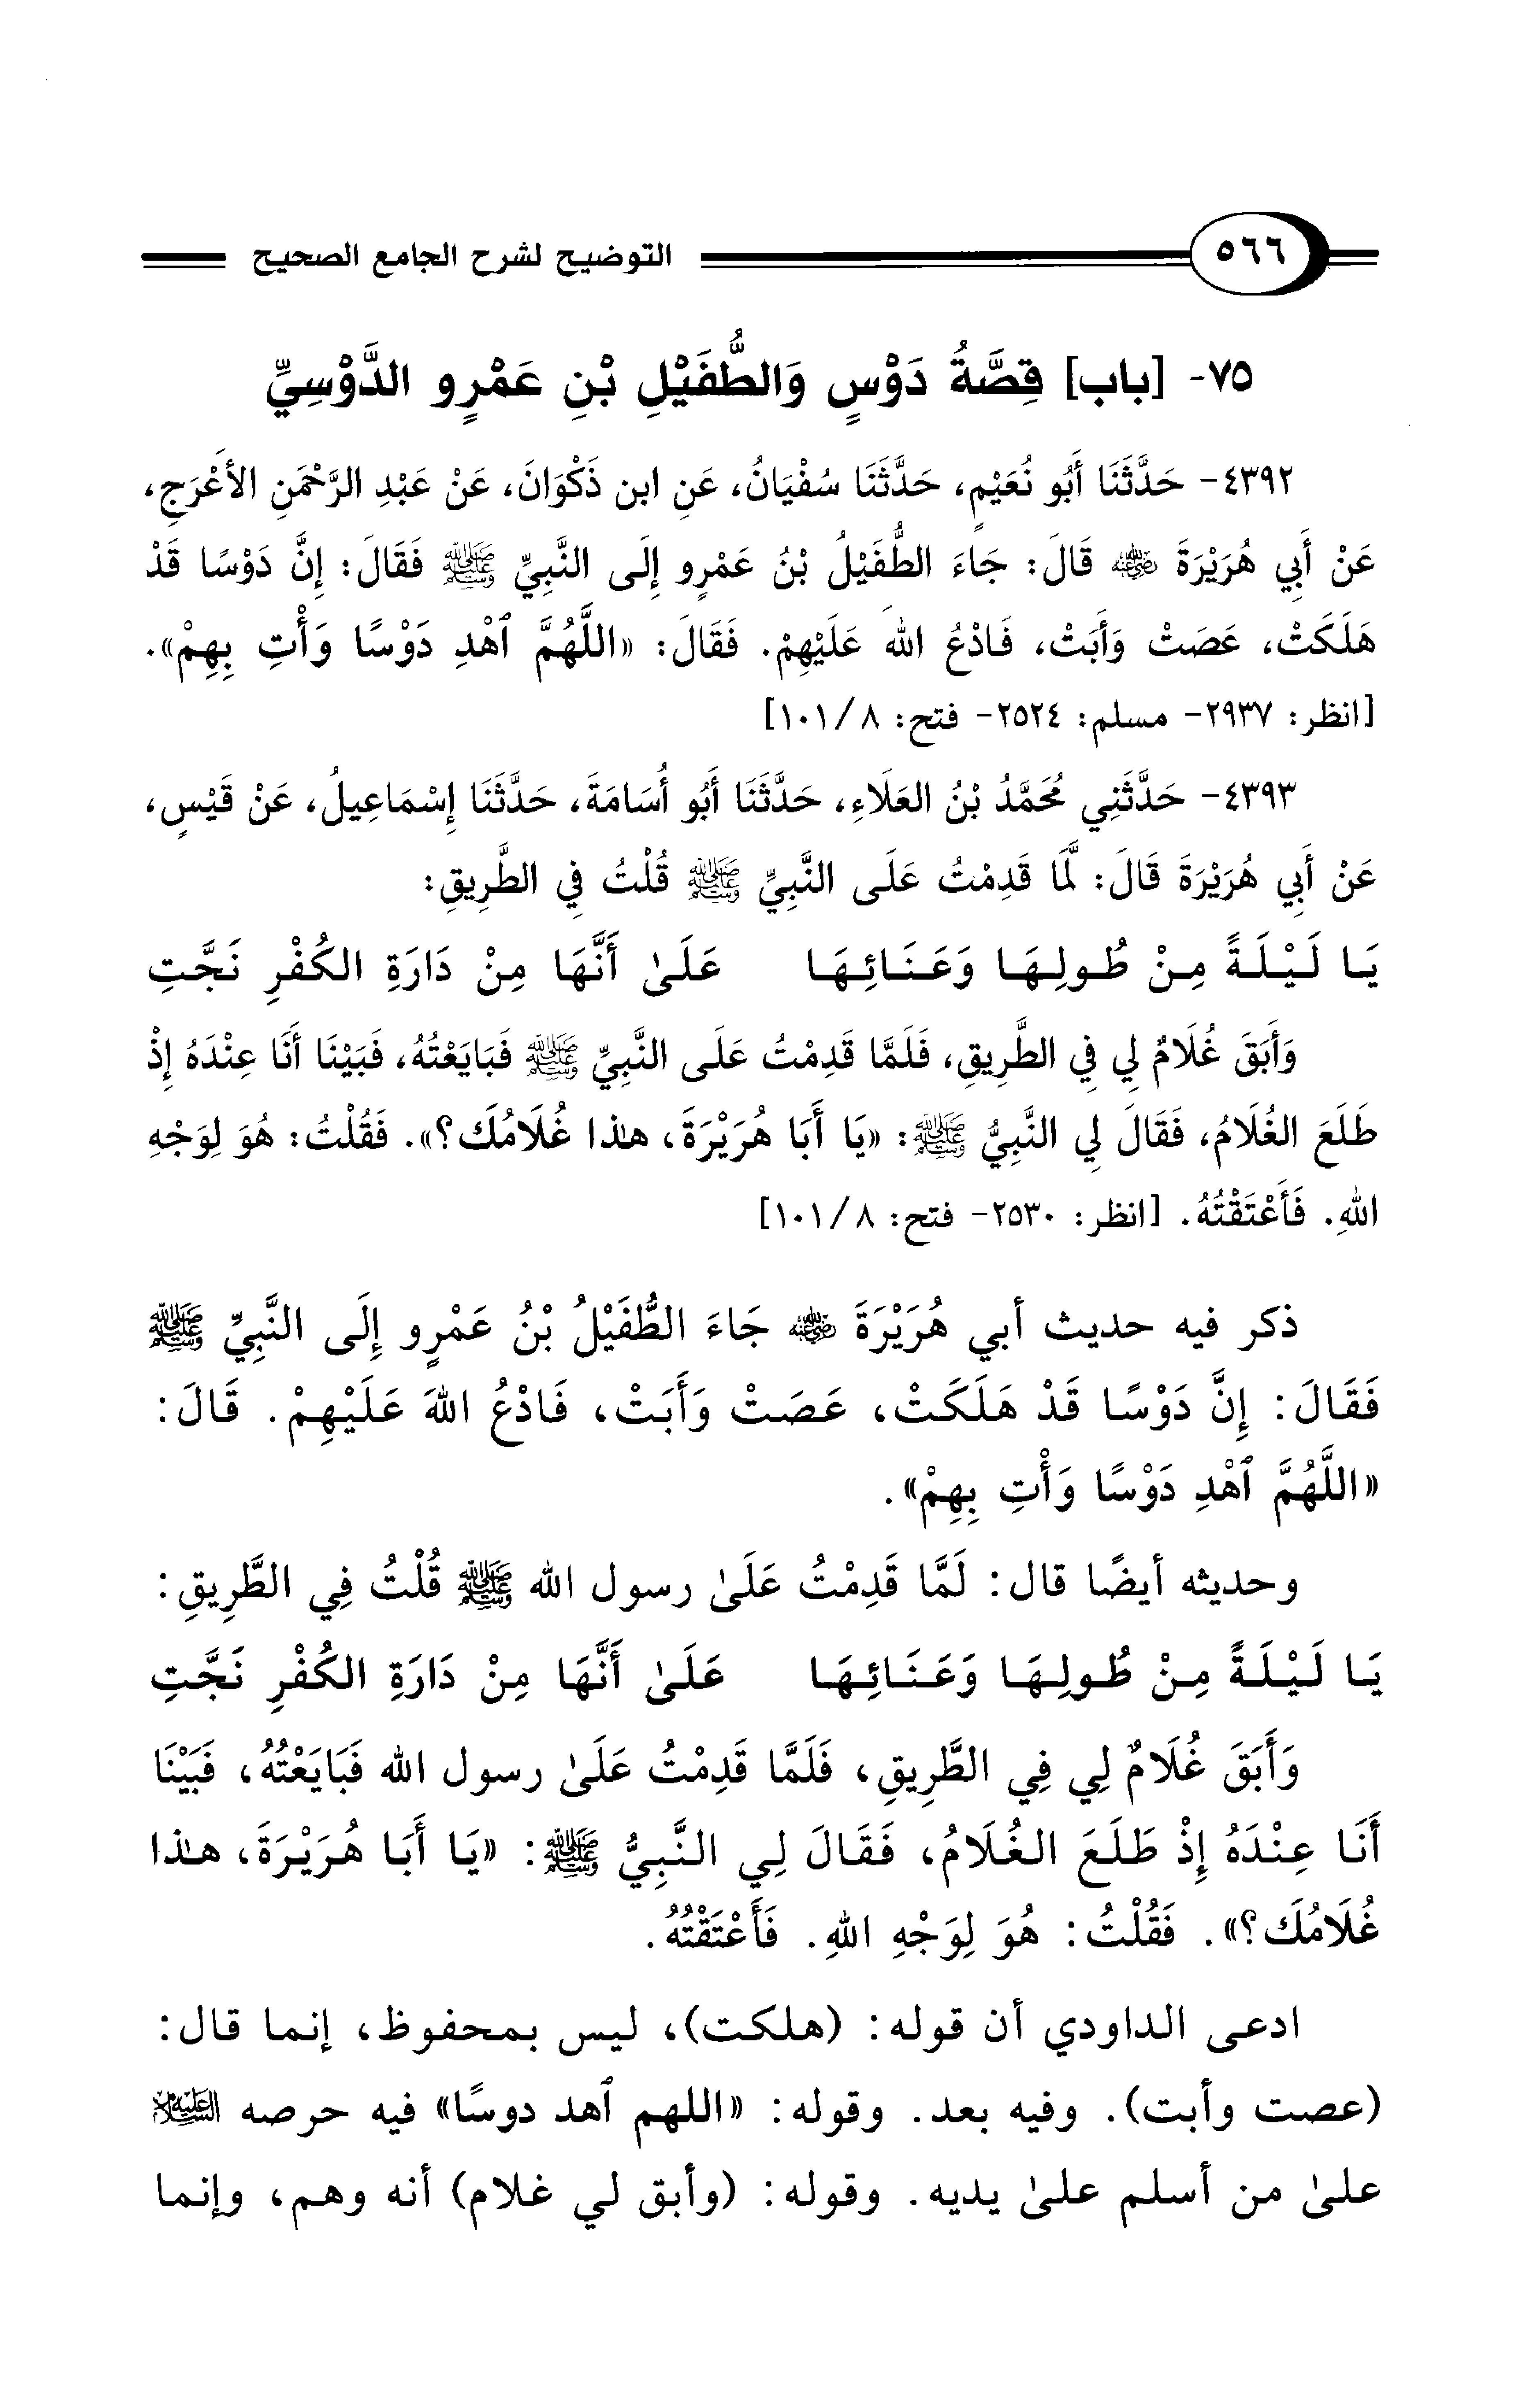 ٥٦٦ التوضيح لشرح الجامع الصحيح
٧٥- [باب] قِصَّةُ دَوْسٍ وَالطُّفَيْلِ بْنِ عَمْرٍو الدَّوْسِيِّ
٤٣٩٢- حَدَّثَنَا أَبُو نُعَيْمٍ، حَدَّثَنَا سُفْيَانُ، عَنِ ابن ذَكْوَانَ، عَنْ عَبْدِ الرَّحْمَنِ الأَعْرَجِ،
عَنْ أَبِي هُرَيْرَةَ رضي الله عنه قَالَ: جَاءَ الطُّفَيْلُ بْنُ عَمْرٍو إِلَى النَّبِيِّ ﷺ فَقَالَ: إِنَّ دَوْسًا قَدْ
هَلَكَتْ، عَصَتْ وَأَبَتْ، فَادْعُ اللهَ عَلَيْهِمْ. فَقَالَ: «اللَّهُمَّ ٱهْدِ دَوْسًا وَأْتِ بِهِمْ».
[انظر: ٢٩٣٧- مسلم: ٢٥٢٤- فتح: ٨/ ١٠١]
٤٣٩٣- حَدَّثَنِي مُحَمَّدُ بْنُ العَلَاءِ، حَدَّثَنَا أَبُو أُسَامَةَ، حَدَّثَنَا إِسْمَاعِيلُ، عَنْ قَيْسٍ،
عَنْ أَبِي هُرَيْرَةَ قَالَ: لَمَّا قَدِمْتُ عَلَى النَّبِيِّ ﷺ قُلْتُ فِي الطَّرِيقِ:
يَا لَيْلَةً مِنْ طُولِهَا وَعَنَائِهَا عَلَىٰ أَنَّهَا مِنْ دَارَةِ الكُفْرِ نَجَّتِ
وَأَبَقَ غُلَامٌ لِي فِي الطَّرِيقِ، فَلَمَّا قَدِمْتُ عَلَى النَّبِيِّ ﷺ فَبَايَعْتُهُ، فَبَيْنَا أَنَا عِنْدَهُ إِذْ
طَلَعَ الغُلَامُ، فَقَالَ لِي النَّبِيُّ ﷺ: «يَا أَبَا هُرَيْرَةَ، هذا غُلَامُكَ؟». فَقُلْتُ: هُوَ لِوَجْهِ
اللهِ. فَأَعْتَقْتُهُ. [انظر: ٢٥٣٠- فتح: ٨/ ١٠١]
ذكر فيه حديث أبي هُرَيْرَةَ رضي الله عنه جَاءَ الطُّفَيْلُ بْنُ عَمْرٍو إِلَى النَّبِيِّ ﷺ
فَقَالَ: إِنَّ دَوْسًا قَدْ هَلَكَتْ، عَصَتْ وَأَبَتْ، فَادْعُ اللهَ عَلَيْهِمْ. قَالَ:
«اللَّهُمَّ ٱهْدِ دَوْسًا وَأْتِ بِهِمْ».
وحديثه أيضًا قال: لَمَّا قَدِمْتُ عَلَىٰ رسول الله ﷺ قُلْتُ فِي الطَّرِيقِ:
يَا لَيْلَةً مِنْ طُولِهَا وَعَنَائِهَا عَلَىٰ أَنَّهَا مِنْ دَارَةِ الكُفْرِ نَجَّتِ
وَأَبَقَ غُلَامٌ لِي فِي الطَّرِيقِ، فَلَمَّا قَدِمْتُ عَلَىٰ رسول الله فَبَايَعْتُهُ، فَبَيْنَا
أَنَا عِنْدَهُ إِذْ طَلَعَ الغُلَامُ، فَقَالَ لِي النَّبِيُّ ﷺ: «يَا أَبَا هُرَيْرَةَ، هذا
غُلَامُكَ؟». فَقُلْتُ: هُوَ لِوَجْهِ اللهِ. فَأَعْتَقْتُهُ.
ادعى الداودي أن قوله: (هلكت)، ليس بمحفوظ، إنما قال:
(عصت وأبت). وفيه بعد. وقوله: «اللهم ٱهد دوسًا» فيه حرصه عليه السلام
علىٰ من أسلم علىٰ يديه. وقوله: (وأبق لي غلام) أنه وهم، وإنما